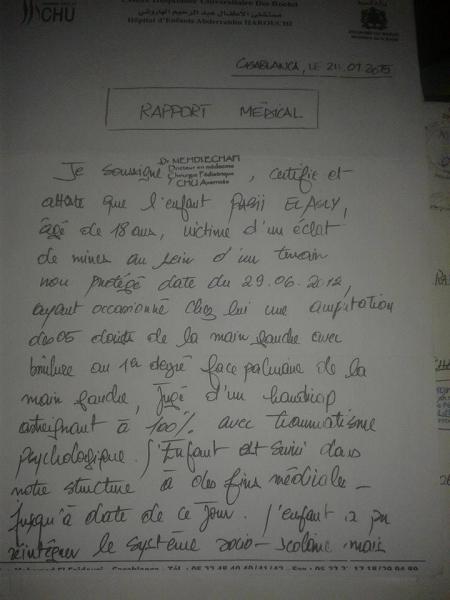 CHU
Centre Hospitalier Universitaire Ibn Rochd
مستشفى الأطفال عبد الرحيم الهاروشي
Hôpital d'Enfants Abderrahim HAROUCHI
CASABLANCA, LE 2 .01.2015
RAPPORT MEDICAL
Je soussigné
Docteur en médecine
Chirurgie Pédiatrique
, certifie et
atteste que l'enfant
âgé de 18 ans, victime d'un éclat
de mines au sein d'un terrain
non protégé date du 29.06.2012,
ayant occasionné chez lui une amputation
des 05 doigts de la main gauche avec
brûlure au 1er degré face palmaire de la
main gauche, Jugé d'un handicap
astreignant à 100% avec traumatisme
psychologique. l'Enfant est suivi dans
notre structure à des fins médicales -
jusqu'à date de ce jour. l'enfant a pu
réintégrer le système socio-scolaire mais
Casablanca - Tél. : 05 22